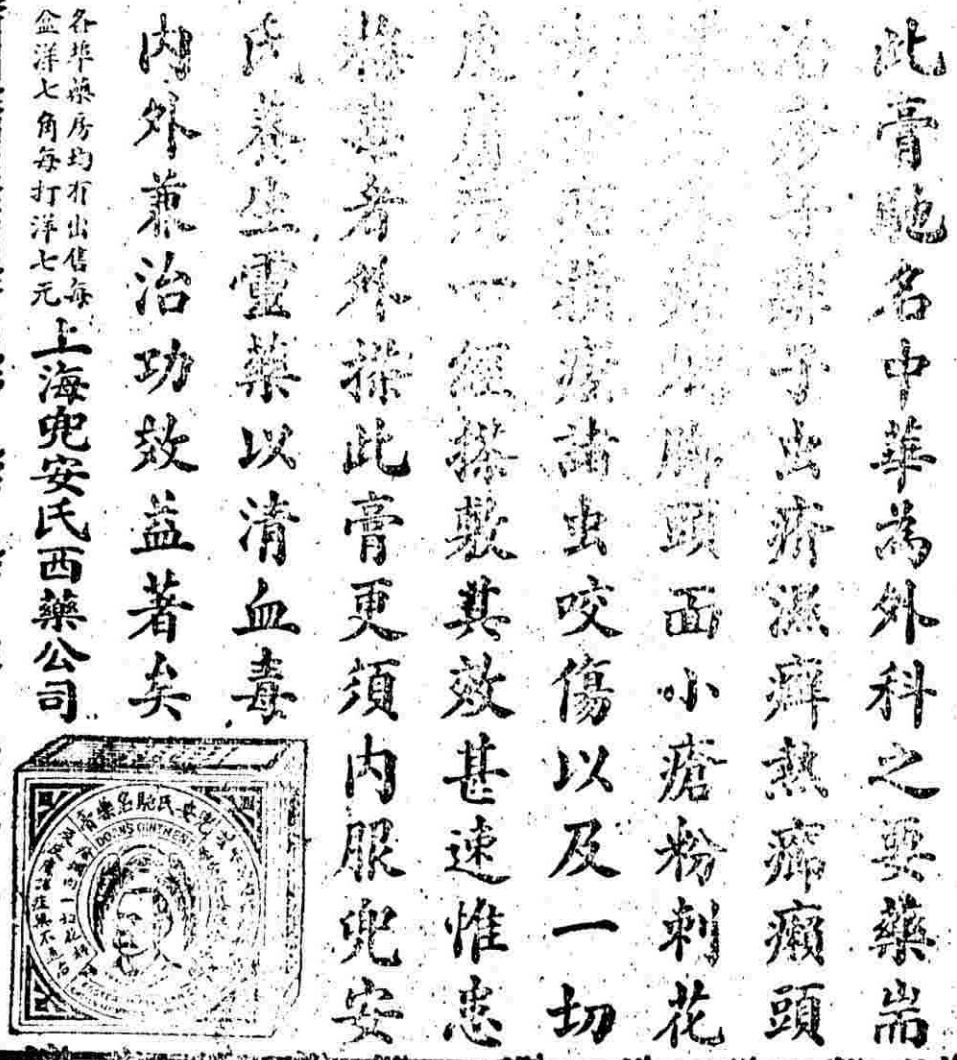 此膏馳名中華為外科之要藥耑
治疹子痱子虫疥濕癬熱癤癩頭
爛脚頭面小瘡粉刺花
諸虫咬傷以及一切
皮膚病一經搽敷其效甚速惟患
梅毒者外搽此膏更須內服兜安
氏養生靈藥以清血毒
內外兼治功效益著矣
各埠藥房均有出售每
盒洋七角每打洋七元
上海兜安氏西藥公司
兜安氏馳名藥膏
DOAN'S OINTMENT